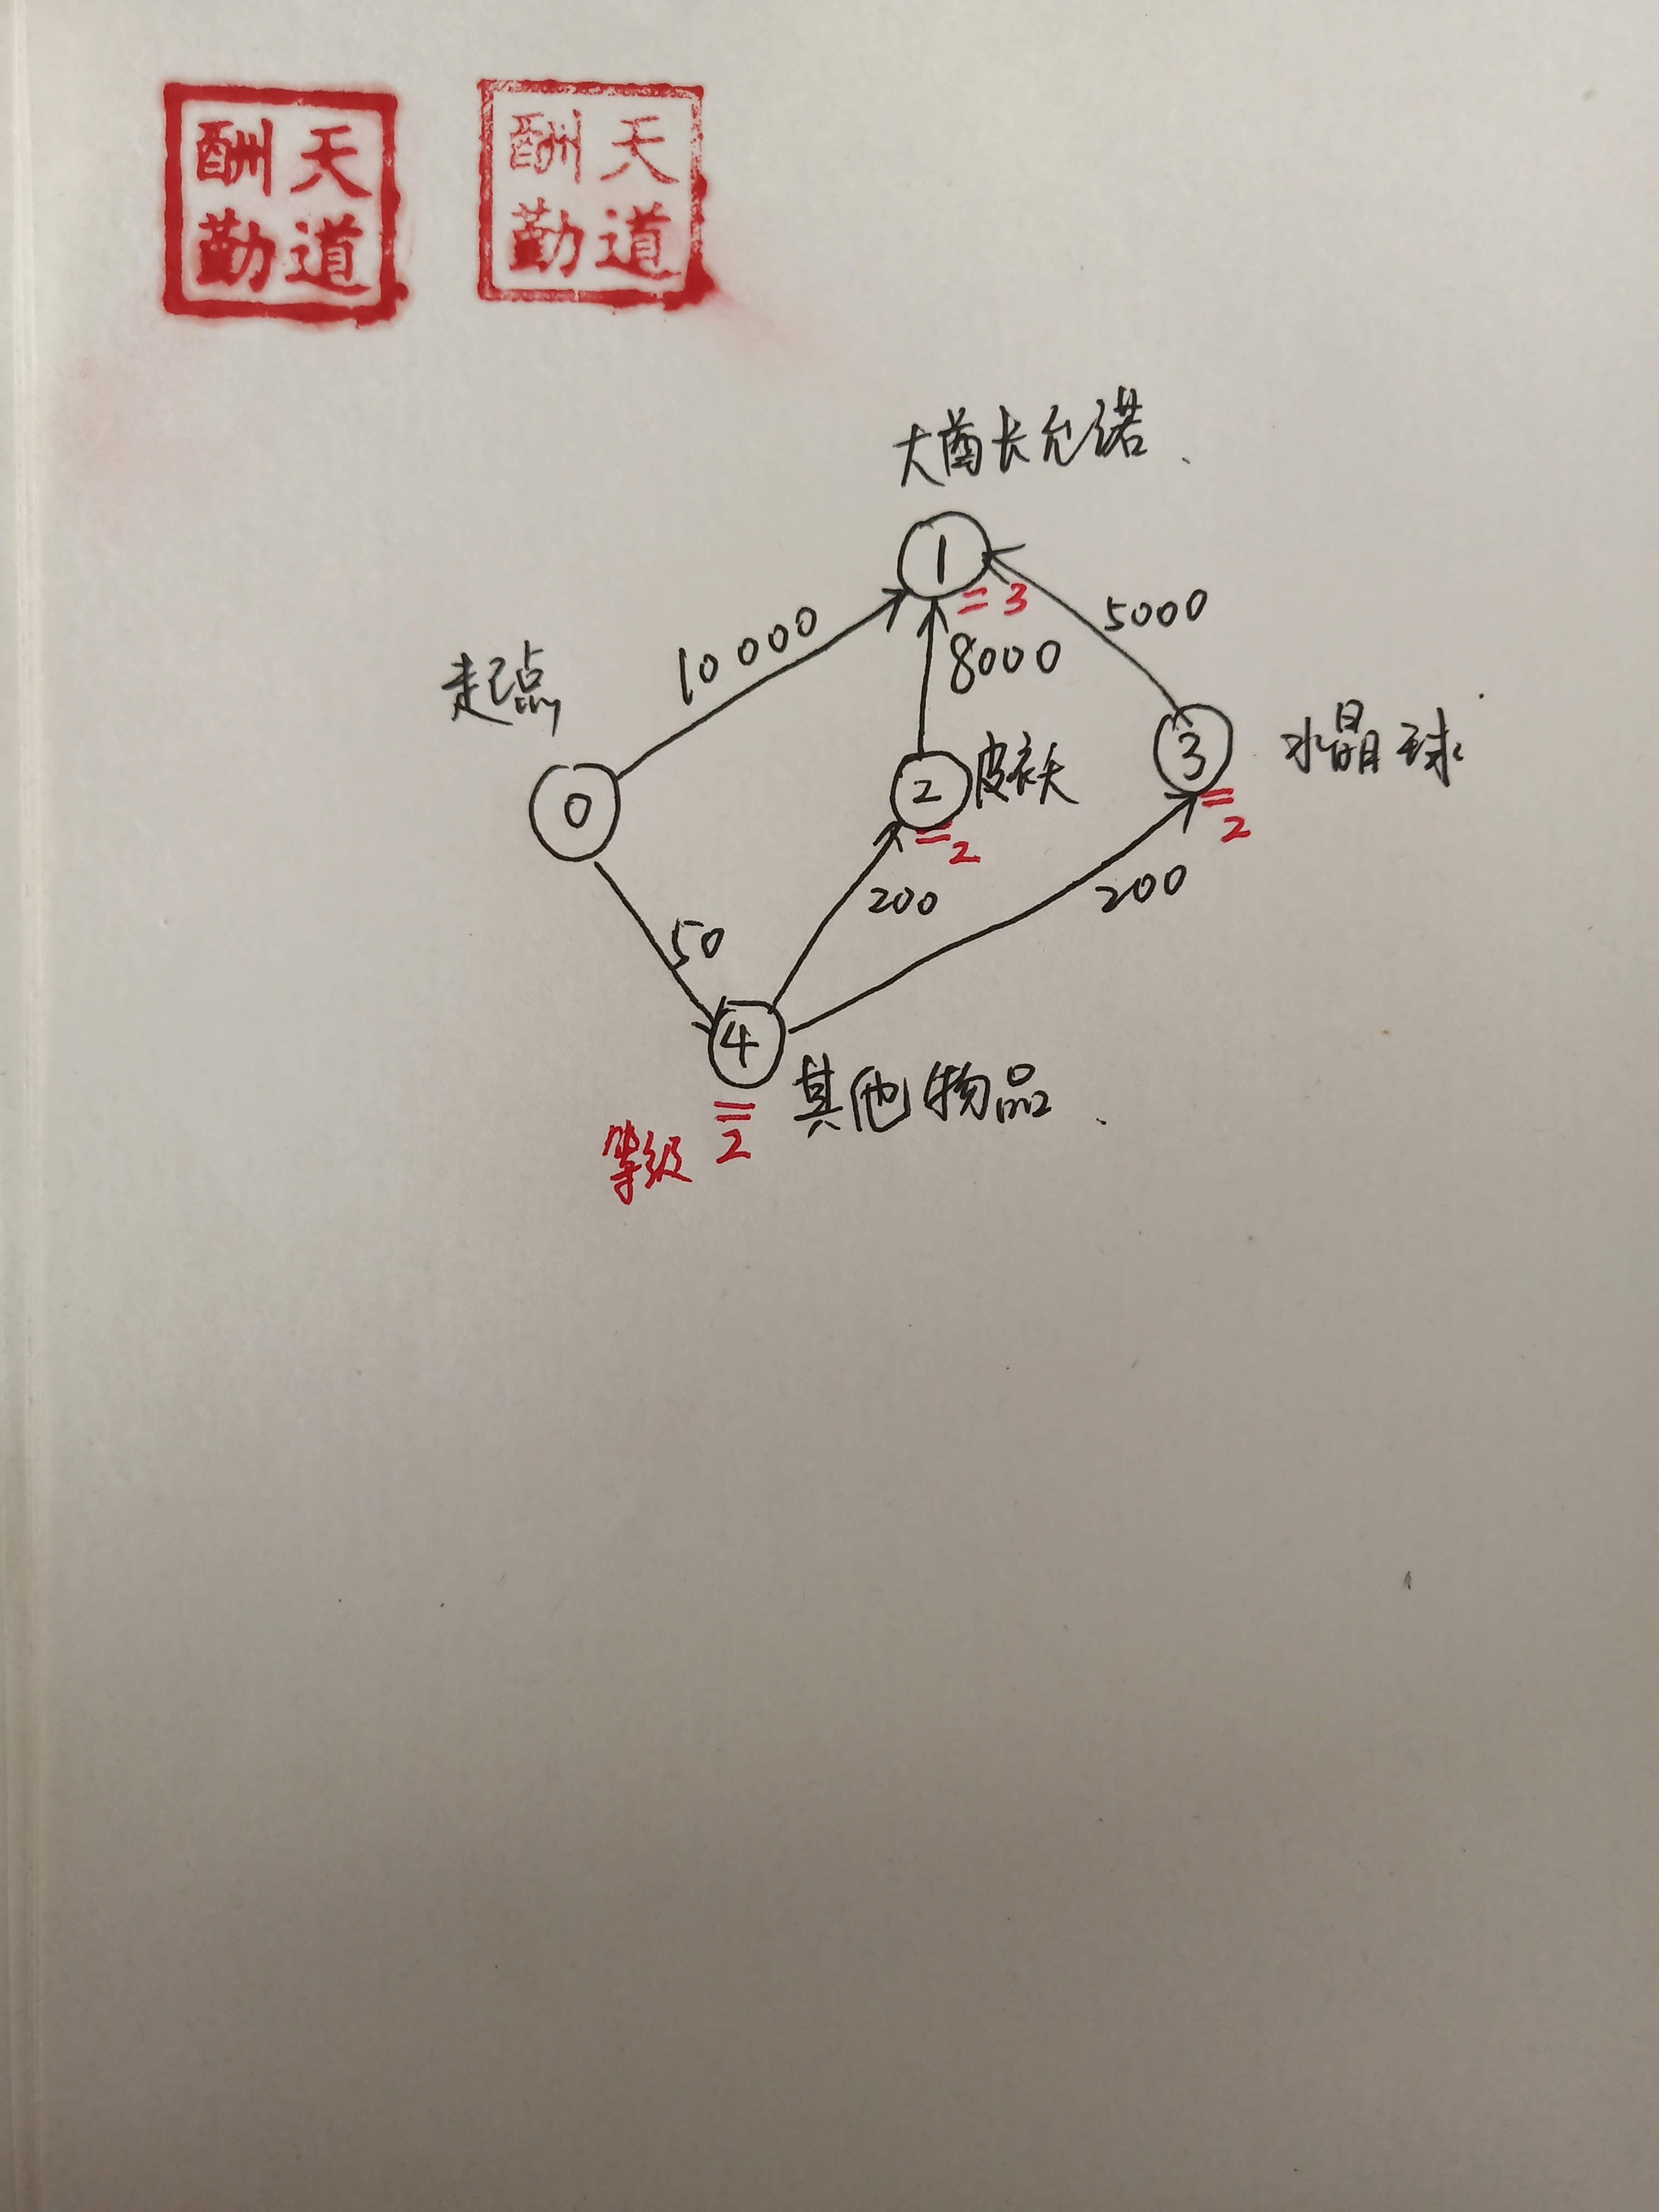 天道酬勤
天道酬勤
大酋长允诺
1
=3
10000
8000
5000
起点
0
2
皮袄
=2
3
水晶球
=2
200
200
50
4
其他物品
等级=2